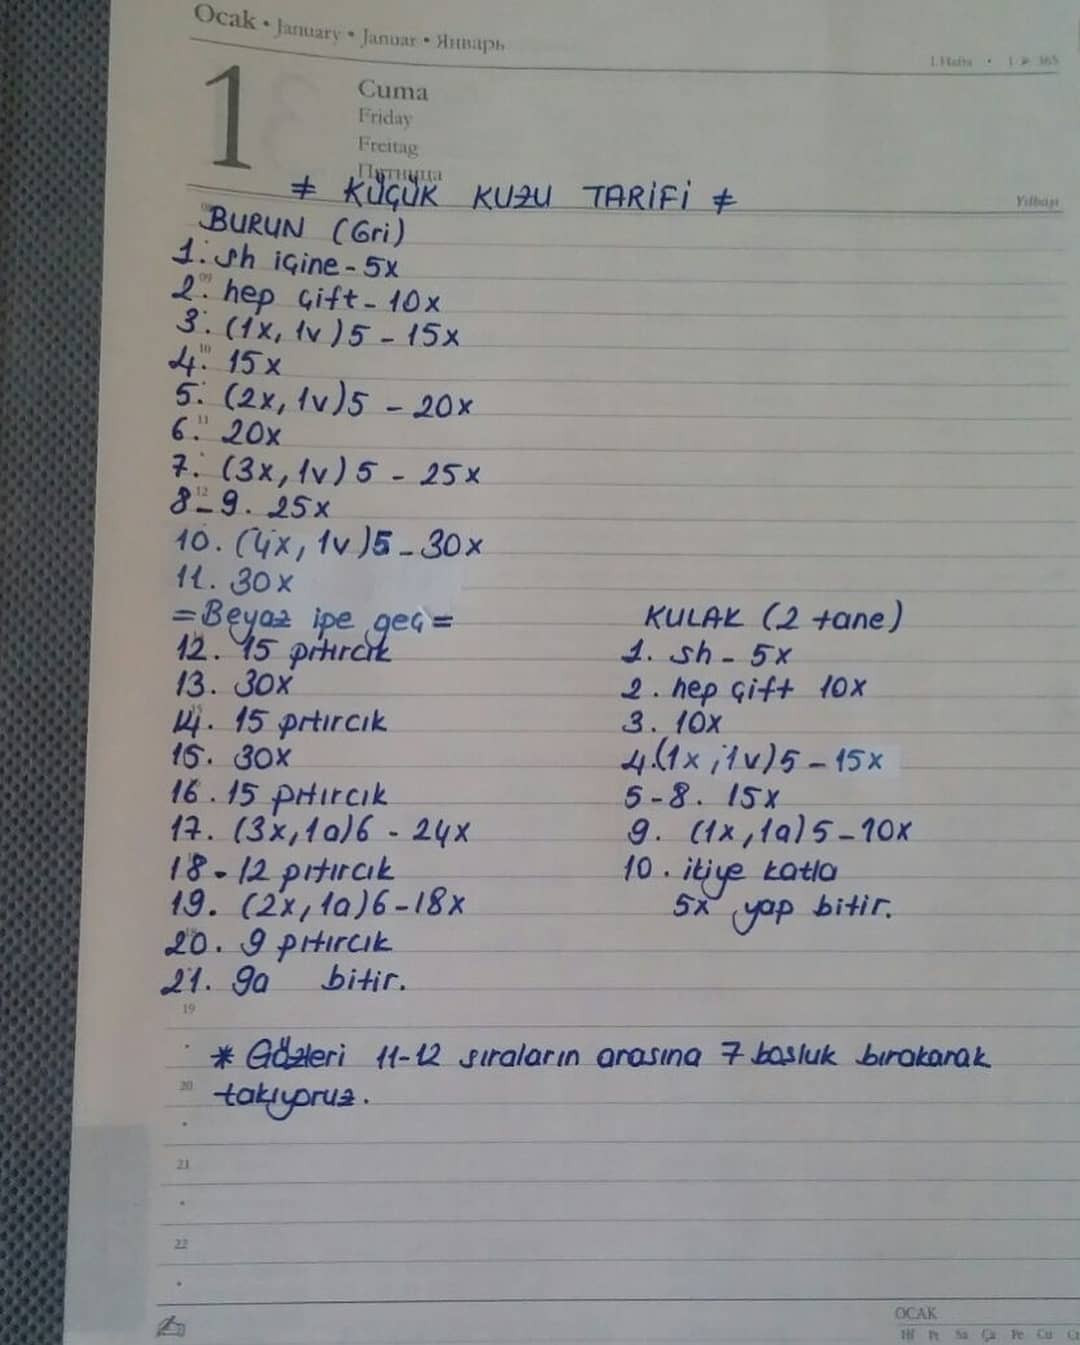 Ocak • January • Januar • Январь
1. Hafta • 1 > 365
1
Cuma
Friday
Freitag
Пятница
Yılbaşı
≠ KÜÇÜK KUZU TARİFİ ≠
BURUN (Gri)
1. sh içine - 5x
2. hep çift - 10x
3. (1x, 1v)5 - 15x
4. 15x
5. (2x, 1v)5 - 20x
6. 20x
7. (3x, 1v)5 - 25x
8-9. 25x
10. (4x, 1v)5 - 30x
11. 30x
=Beyaz ipe geç=
12. 15 pıtırcık
13. 30x
14. 15 pıtırcık
15. 30x
16. 15 pıtırcık
17. (3x, 1a)6 - 24x
18 - 12 pıtırcık
19. (2x, 1a)6 - 18x
20. 9 pıtırcık
21. 9a bitir.
KULAK (2 tane)
1. sh - 5x
2. hep çift 10x
3. 10x
4.(1x ; 1v)5 - 15x
5-8. 15x
9. (1x, 1a)5 - 10x
10. ikiye katla
5x yap bitir.
* Gözleri 11-12 sıraların arasına 7 boşluk bırakarak
takıyoruz.
09
10
11
12
19
20
21
22
OCAK
Hf Pt Sa Ça Pe Cu Ct